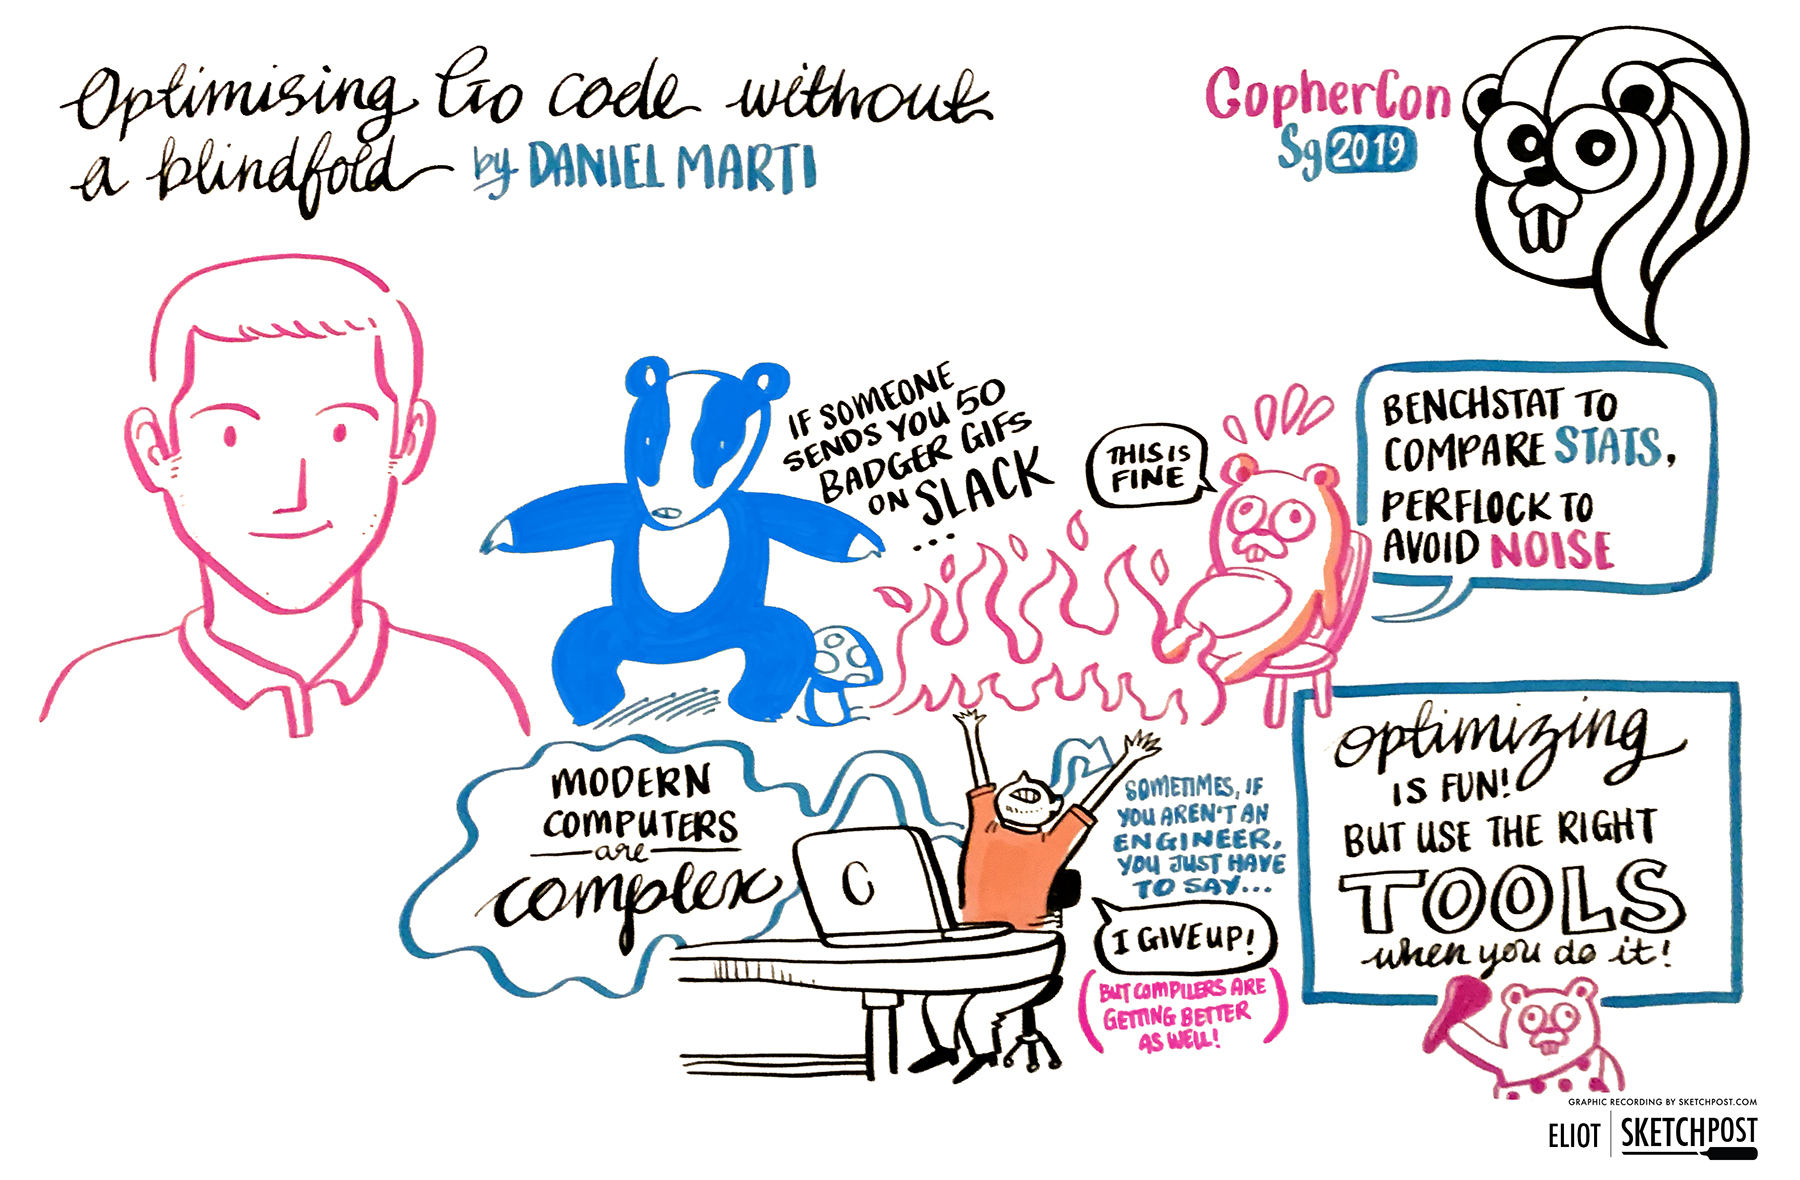 Optimising Go code without
a blindfold by DANIEL MARTI
GopherCon
Sg 2019
IF SOMEONE
SENDS YOU 50
BADGER GIFS
ON SLACK
...
THIS IS
FINE
BENCHSTAT TO
COMPARE STATS,
PERFLOCK TO
AVOID NOISE
MODERN
COMPUTERS
are
complex
C
SOMETIMES, IF
YOU AREN'T AN
ENGINEER,
YOU JUST HAVE
TO SAY...
I GIVE UP!
(BUT COMPILERS ARE
GETTING BETTER
AS WELL!)
optimizing
IS FUN!
BUT USE THE RIGHT
TOOLS
when you do it!
GRAPHIC RECORDING BY SKETCHPOST.COM
ELIOT | SKETCHPOST